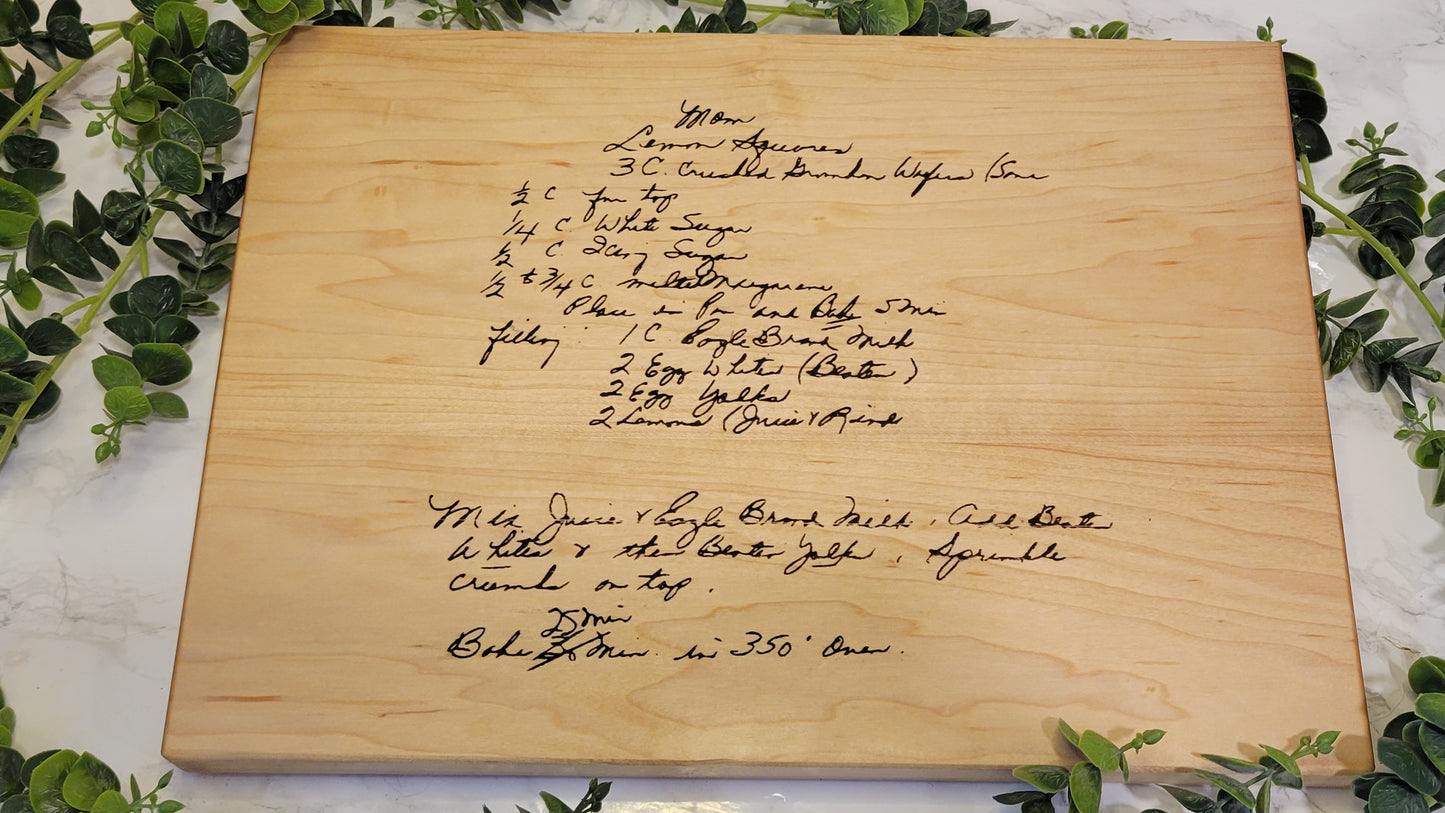 Mom
Lemon Squares
3 C. Crushed Graham Wafers (Save
½ C for top
1/4 C. White Sugar
½ C. Icing Sugar
½ to 3/4 C melted Margarine
Place in Pan and Bake 5 Min
filling: 1 C. Eagle Brand Milk
2 Egg Whites (Beaten)
2 Egg Yolks
2 Lemons (Juice & Rind
Mix Juice & Eagle Brand Milk. Add Beaten
Whites & then Beaten Yolks. Sprinkle
crumbs on top.
25 Min
Bake Min. in 350° Oven.